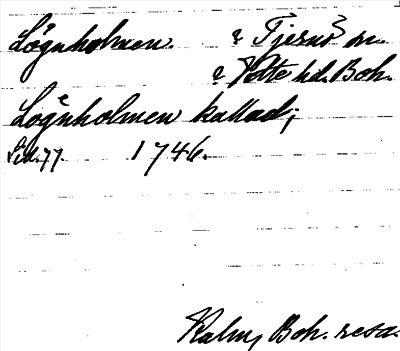 Lögnholmen. i Tjernö sn.
i Vette hd. Boh.
Lögnholmen kallad;
Sid. 77. 1746.
Kalm, Boh. resa.